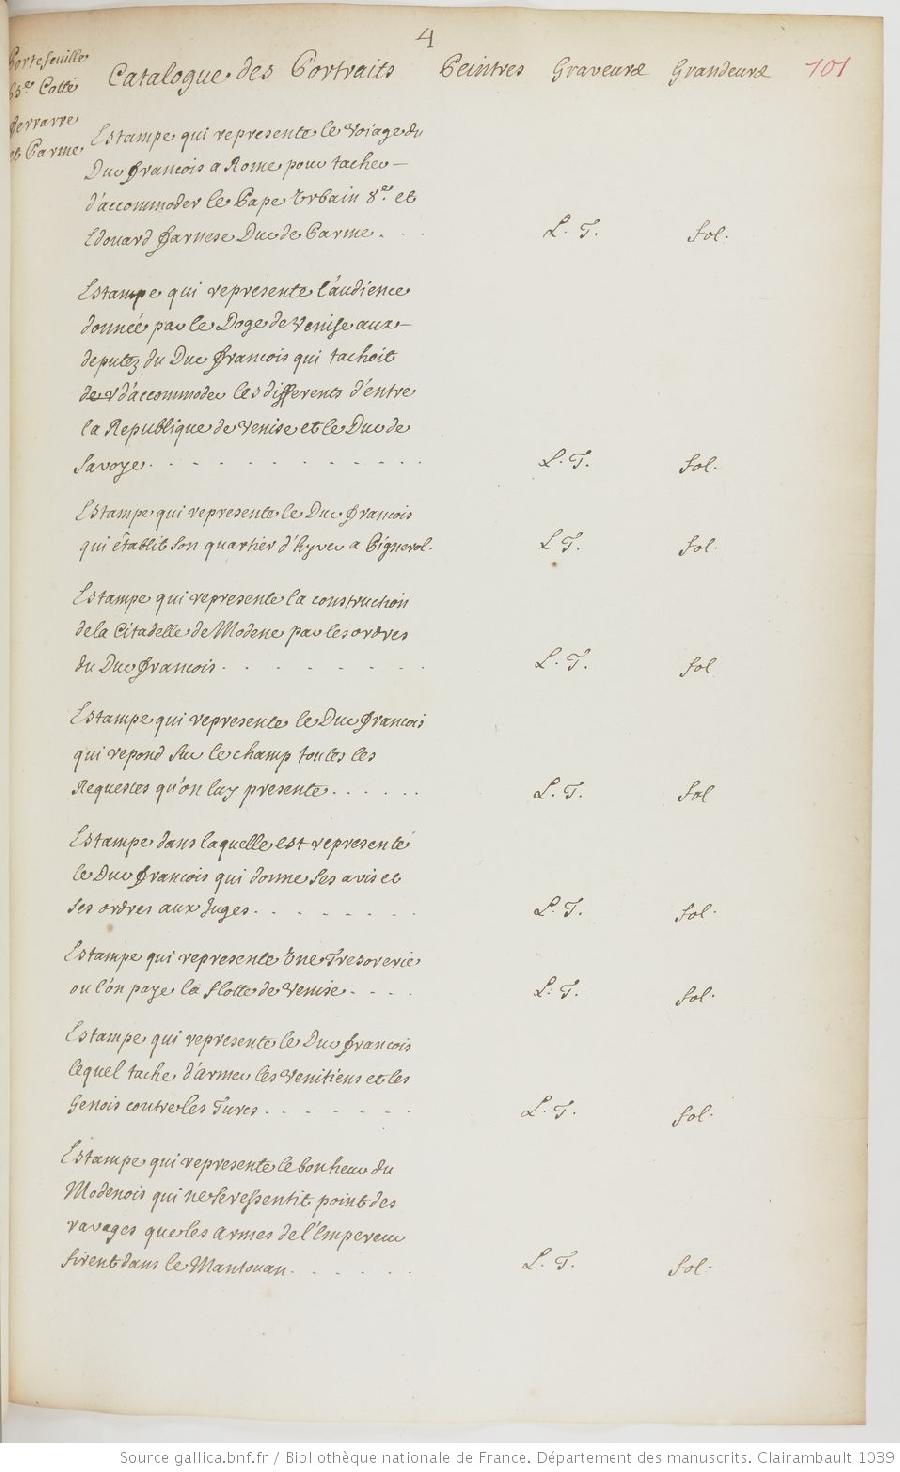 4
Portefeuille
65er Cotté
Ferrarre
et Parme
Catalogue des Portraits Peintres Graveurs Grandeurs 101
Estampe qui represente le voiage du
Duc francois a Rome pour tacher
d'accommoder le Pape Urbain 8e et
Edouard farnese Duc de Parme. L. T. fol.
Estampe qui represente l'audience
donnée par le Doge de Venise aux
deputez du Duc francois qui tachoit
de d'accommoder les differents d'entre
la Republique de Venise et le Duc de
Savoye. L. T. fol.
Estampe qui represente le Duc francois
qui êtablit son quartier d'hyver a Pignerol. L. T. fol.
Estampe qui represente la construction
de la Citadelle de Modene par les ordres
du Duc francois. L. T. fol
Estampe qui represente le Duc francois
qui repond sur le champ toutes les
Requestes qu'on luy presente. L. T. fol
Estampe dans laquelle est representé
le Duc francois qui donne ses avis et
ses ordres aux Juges. L. T. fol.
Estampe qui represente Une Tresorerie
ou l'on paye la flotte de Venise. L. T. fol.
Estampe qui represente le Duc francois
lequel tache d'armer les Venitiens et les
Genois contre les Turcs. L. T. fol.
Estampe qui represente le bonheur du
Modenois qui ne se ressentit point des
ravages que les armes de l'Empereur
firent dans le Mantouan. L. T. fol.
Source gallica.bnf.fr / Bibliothèque nationale de France. Département des manuscrits. Clairambault 1039